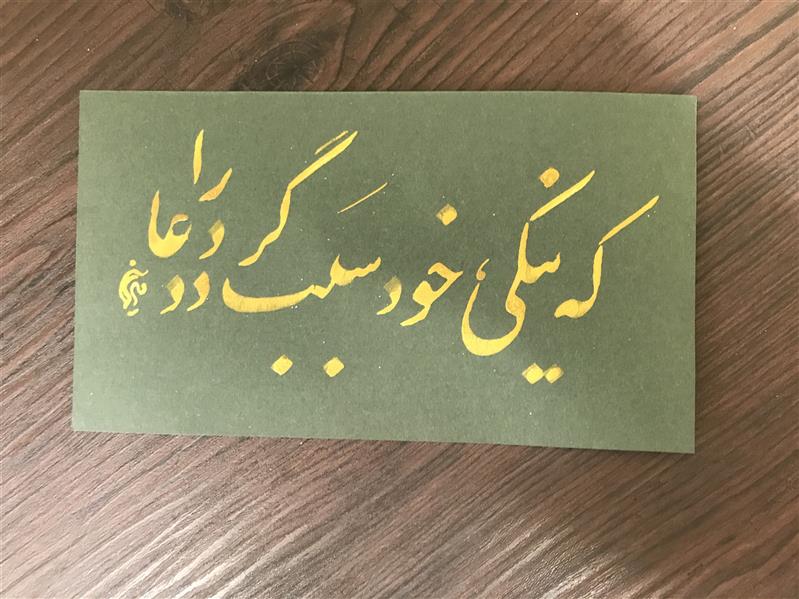 که نیکی خود سبب گردد دعا را